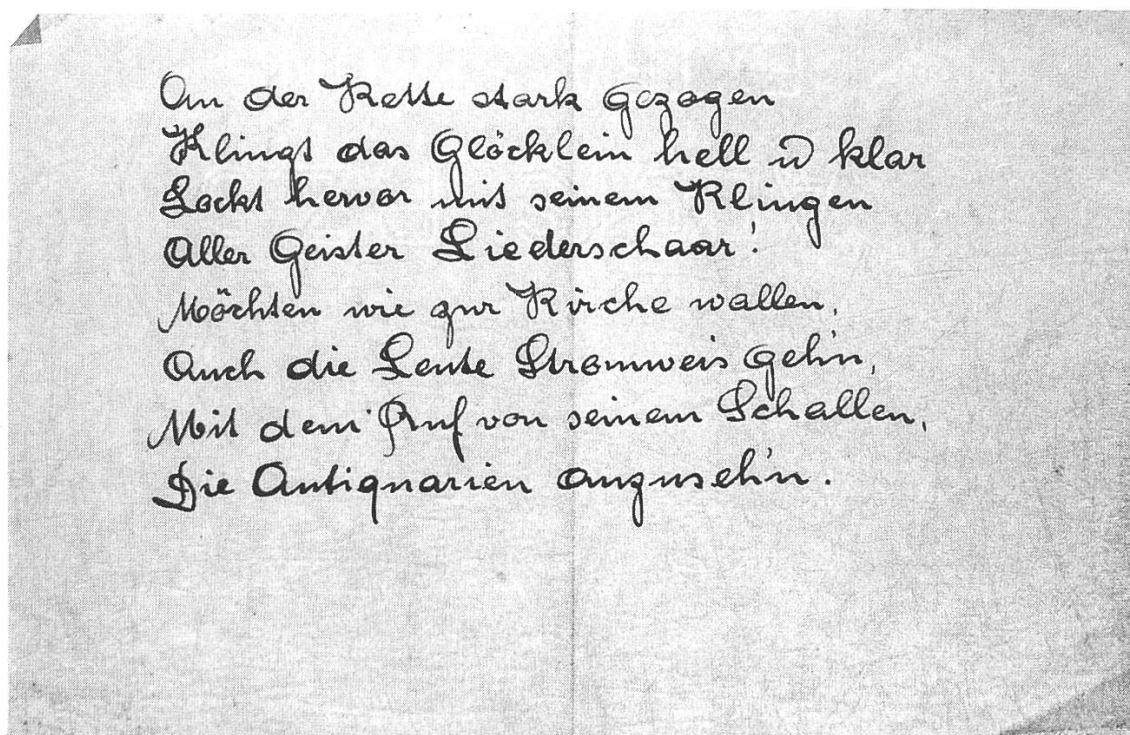 An der Kette stark gezogen
Klingt das Glöcklein hell u klar
Lockt hervor mit seinem Klingen
Aller Geister Liederschaar!
Möchten wie zur Kirche wallen,
Auch die Leute Stromweis geh'n,
Mit dem Ruf von seinem Schallen,
Die Antiquarien anzuseh'n.